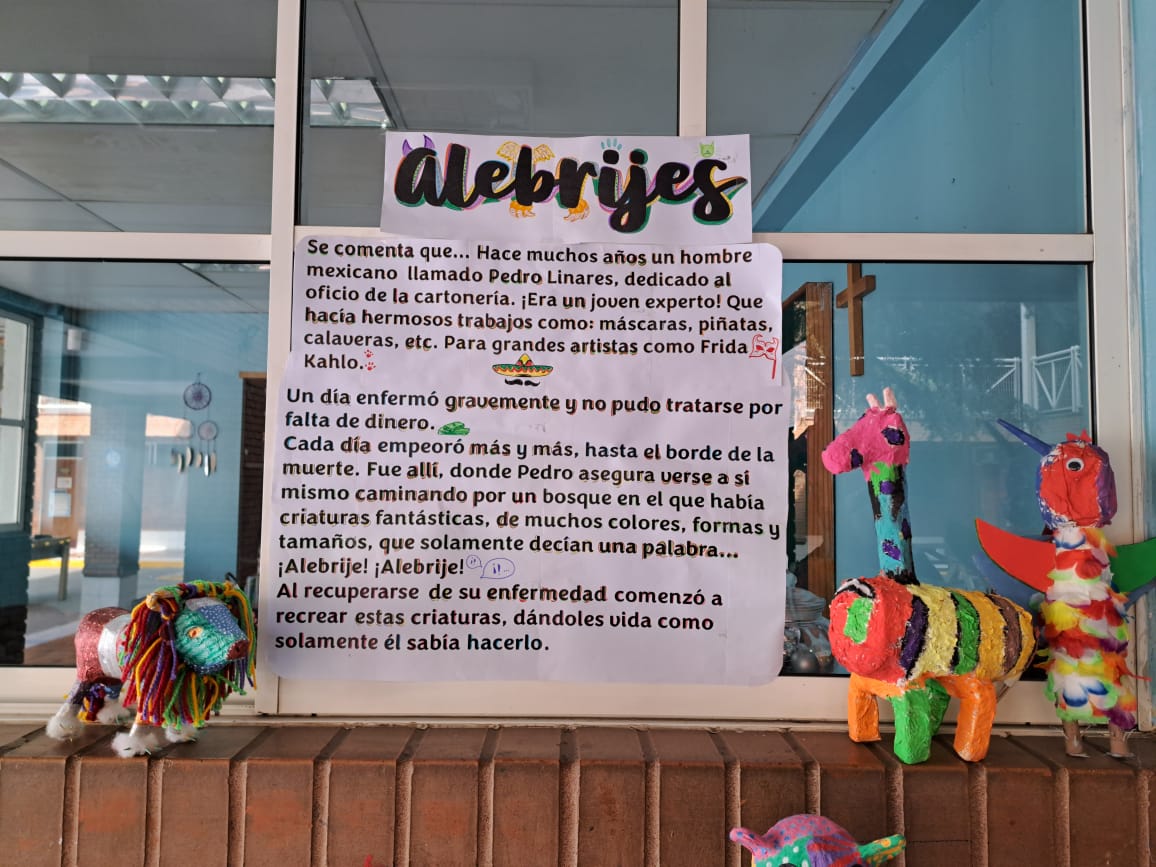 alebrijes
Se comenta que... Hace muchos años un hombre
mexicano llamado Pedro Linares, dedicado al
oficio de la cartonería. ¡Era un joven experto! Que
hacía hermosos trabajos como: máscaras, piñatas,
calaveras, etc. Para grandes artistas como Frida
Kahlo.
Un día enfermó gravemente y no pudo tratarse por
falta de dinero.
Cada día empeoró más y más, hasta el borde de la
muerte. Fue allí, donde Pedro asegura verse a sí
mismo caminando por un bosque en el que había
criaturas fantásticas, de muchos colores, formas y
tamaños, que solamente decían una palabra...
¡Alebrije! ¡Alebrije!
Al recuperarse de su enfermedad comenzó a
recrear estas criaturas, dándoles vida como
solamente él sabía hacerlo.